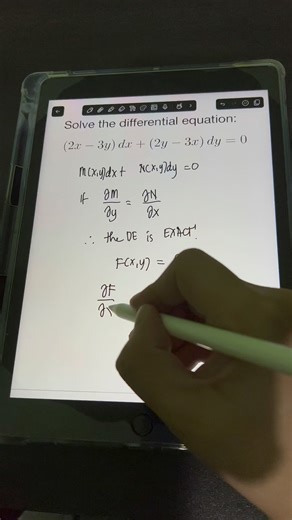 Solve the differential equation:
(2x − 3y) dx + (2y − 3x) dy = 0
M(x,y)dx + N(x,y)dy = 0
If ∂M/∂y = ∂N/∂x
∴ the DE is EXACT!
F(x,y) =
∂F